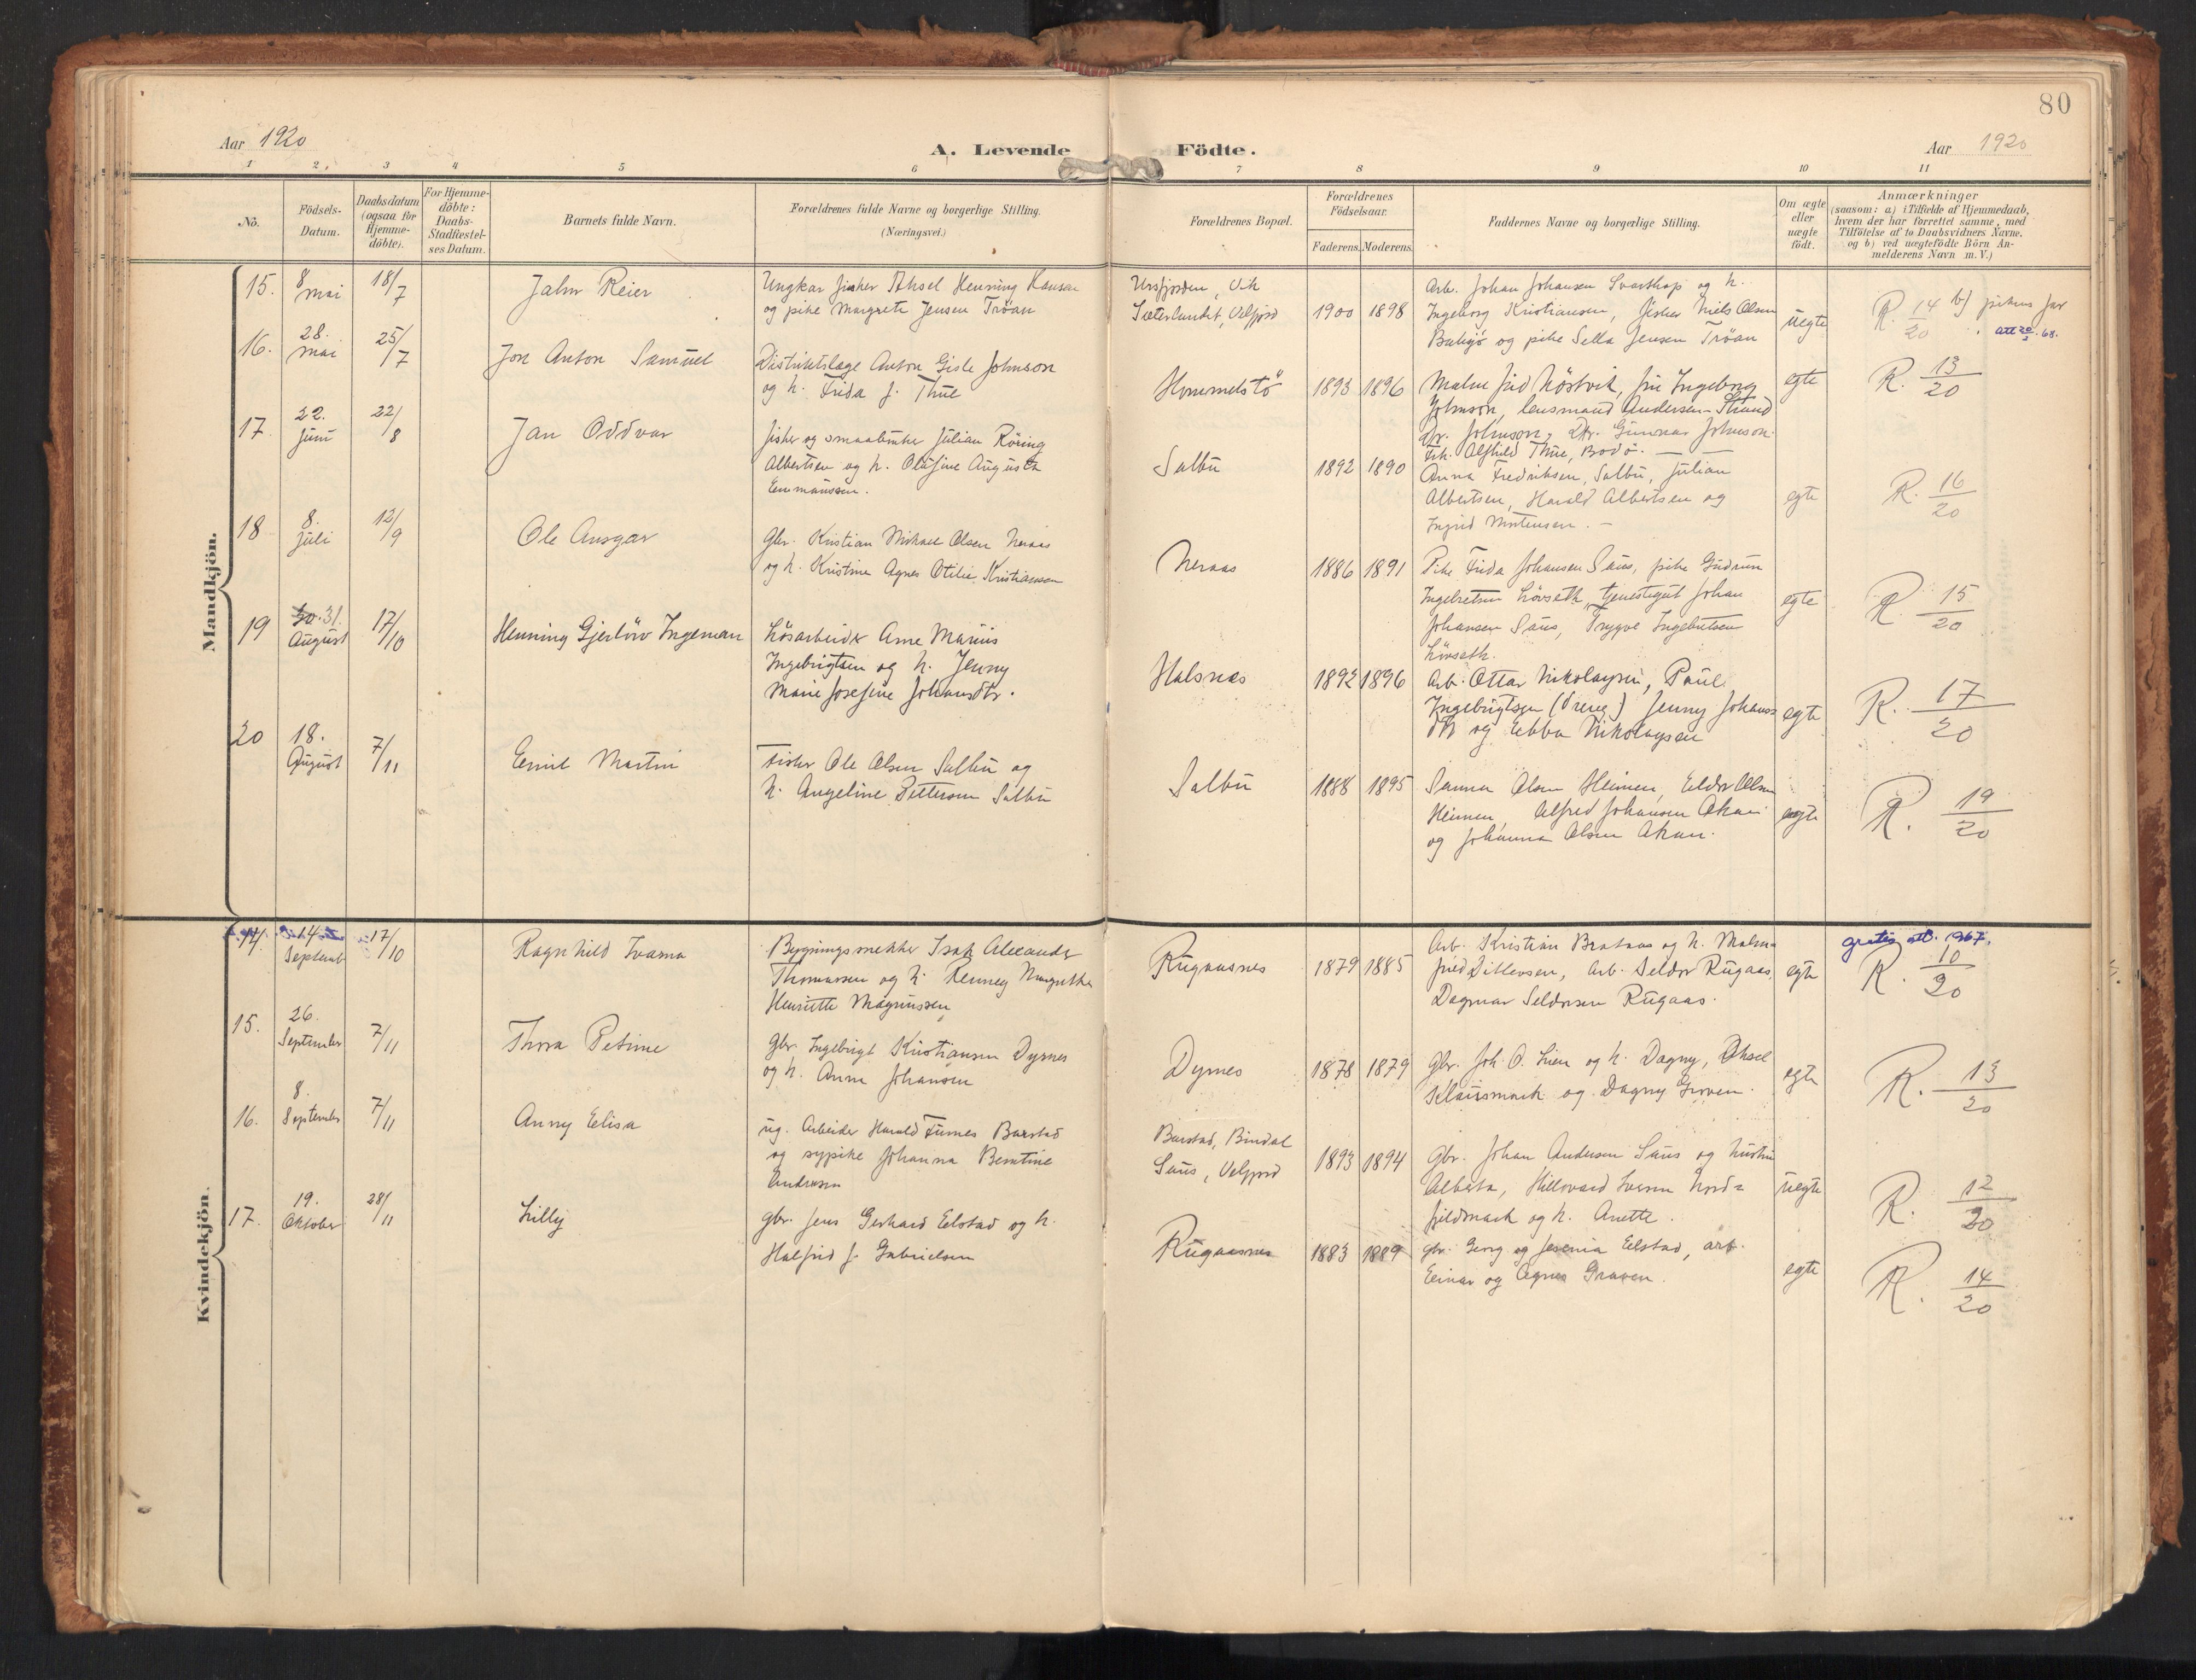 80
Aar 1920
A. Levende Födte.
Aar 1920
1 2. 3 4 5 6 7 8 9 10 11
No.
Födsels-
Datum.
Daabsdatum
(ogsaa for
Hjemme-
döbte).
For Hjemme-
döbte:
Daabs-
Stadfæstel-
ses Datum.
Barnets fulde Navn.
Forældrenes fulde Navne og borgerlige Stilling.
(Næringsvei.)
Forældrenes Bopæl.
Forældrenes
Födselsaar.
Faderens. Moderens.
Faddernes Navne og borgerlige Stilling.
Om ægte
eller
uægte
födt.
Anmærkninger
(saasom: a) i Tilfælde af Hjemmedaab,
hvem der har forrettet samme, med
Tilföielse af to Daabsvidners Navne,
og b) ved uægtefödte Börn An-
melderens Navn m. V.)
Mandkjön.
15. 8 mai 18/7
Jahn Reier
Ungkar fisker Aksel Henning Hansen
og pike Margrete Jensen Tröan
Ursfjorden, Vik
Sæterlandet, Velfjord
1900 1898
Arb. Johan Johansen Svarthop og h.
Ingeborg Kristiansen, fisker Niels Olsen
og pike Sella Jensen Tröan
uegte
R. 14/20 b) pikens far
16. 28. mai 25/7
Jon Anton Samuel
Distriktslæge Anton Gisle Johnson
og h. Frida J. Thue
Hommelstö
1893 1896
Malm frid Höstvik, fru Ingeborg
Johnson, lensmand Andersen-Strand
Dr. Johnson, Dr. Gunnar Johnson.
Frk. Alfhild Thue, Bodö.
egte
R. 13/20
17 22. Juni 22/8
Jan Oddvar
fisker og smaabruker Julian Röring
Albertsen og h. Olufine Augusta
Emmaussen.
Salbu
1892 1890
Anna Fredriksen, Salbu, Julian
Albertsen, Harald Albertsen og
Ingrid Mortensen.
egte
R. 16/20
18 8. Juli 12/9
Ole Ansgar
Gbr. Kristian Mikael Olsen Neraas
og h. Kristine Agnes Otilie Kristiansen
Neraas
1886 1891
Pike Frida Johansen Saus, pike Gudrun
Ingebretsen Lövseth, tjenestegut Johan
Johansen Saus, Trygve Ingebretsen
Lövseth.
egte
R. 15/20
19 30. 31. August 17/10
Henning Gjerlöw Ingeman
Lösarbeider Arne Marius
Ingebrigtsen og h. Jenny
Marie Josefine Johansdtr.
Halsnes
1892 1896
Arb. Ottar Nikolaysen, Paul
Ingebrigtsen (Dreng) Jenny Johans
dtr og Ebba Nikolaysen
egte
R. 17/20
20 18. August 7/11
Emil Martin
Fisker Ole Olsen Salbu og
h. Angeline Pettersen Salbu
Salbu
1888 1895
Sanna Olsen Heimen, Eldor Olsen
Heimen, Alfred Johansen Okan
og Johanna Olsen Akan.
egte
R. 19/20
Kvindekjön.
14. 14 September 17/10
Ragnhild Ivarna
Bygningssnekker Isak Alexander
Thomassen og h. Renney Margrethe
Henriette Magnussen
Rugaasnes
1879 1885
Arb. Kristian Brataas og h. Malm-
frid Ditlevsen, Arb. Seldor Rugaas,
Dagmar Seldorsen Rugaas.
egte
gratis att. 1967.
R. 10/20
15. 26. September 7/11
Thora Petrine
Gbr. Ingebrigt Kristiansen Dyrnes
og h. Anna Johansen
Dyrnes
1878 1879
Gbr. Joh. O. Lien og h. Dagny, Aksel
Klausmark og Dagny Groven.
egte
R. 13/20
16. 8. September 7/11
Anny Elisa
ug. Arbeider Harald Furnes Barstad
og sypike Johanna Berntine
Andresen
Barstad, Bindal
Saus, Velfjord
1893 1894
Gbr. Johan Andersen Saus og hustru
Alberta, Hillevard Iversen Nord-
fjeldmark og h. Anette.
uegte
R. 12/20
17. 19. Oktober 28/11
Lilly
gbr. Jens Gerhard Eilstad og h.
Halfrid J. Gabrielsen
Rugaasnes
1883 1889
gbr. Georg og Jesenia Eilstad, arb.
Einar og Agnes Graven.
egte
R. 14/20